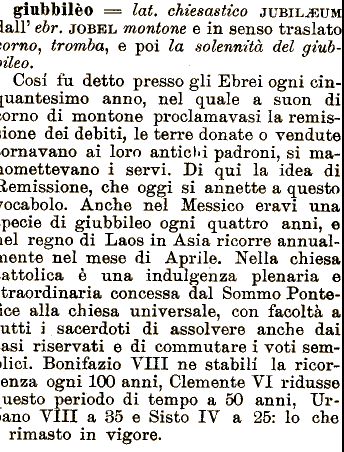 giubbilèo = lat. chiesastico JUBILÆUM
dall' ebr. JOBEL montone e in senso traslato
corno, tromba, e poi la solennità del giub-
bileo.
Cosí fu detto presso gli Ebrei ogni cin-
quantesimo anno, nel quale a suon di
corno di montone proclamavasi la remis-
sione dei debiti, le terre donate o vendute
tornavano ai loro antichi padroni, si ma-
nomettevano i servi. Di qui la idea di
Remissione, che oggi si annette a questo
vocabolo. Anche nel Messico eravi una
specie di giubbileo ogni quattro anni, e
nel regno di Laos in Asia ricorre annual-
mente nel mese di Aprile. Nella chiesa
cattolica è una indulgenza plenaria e
straordinaria concessa dal Sommo Ponte-
fice alla chiesa universale, con facoltà a
tutti i sacerdoti di assolvere anche dai
casi riservati e di commutare i voti sem-
plici. Bonifazio VIII ne stabilí la ricor-
renza ogni 100 anni, Clemente VI ridusse
questo periodo di tempo a 50 anni, Ur-
bano VIII a 35 e Sisto IV a 25: lo che
rimasto in vigore.